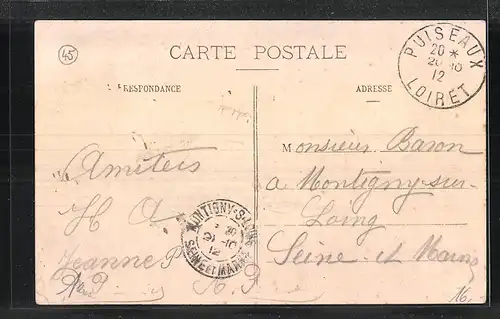 45
CARTE POSTALE
RESPONDANCE
ADRESSE
PUISEAUX
20 *
20 10
12
LOIRET
Monsieur Baron
a Montigny-sur-
Loing
Seine et Marne
Amitiés
H A
Jeanne P
MONTIGNY-S-LOING
21 10
12
SEINE ET MARNE
16